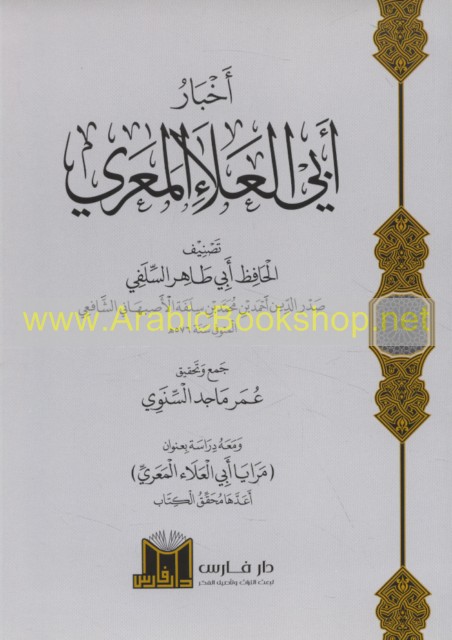 أَخْبَارُ
أَبِي العَلَاءِ المَعَرِّي
تَصْنِيْف
الحَافِظ أَبِي طَاهِر السِّلَفِي
صَدْر الدِّين أَحْمَد بْن مُحَمَّد بْن سِلَفَة الأَصبهاني الشَّافعي
المتوفى سنة ٥٧٦هـ
www.ArabicBookshop.net
جَمع وَتحقيق
عُمَر مَاجِد السِّنَوِي
وَمَعَهُ دِرَاسَة بِعنوان
(مَرَايَا أَبِي العَلَاء المَعَرِّيّ)
أعَدَّهَا مُحَقِّقُ الكِتَاب
دار فارس
دار فارس
لبعث التراث وتأصيل الفكر